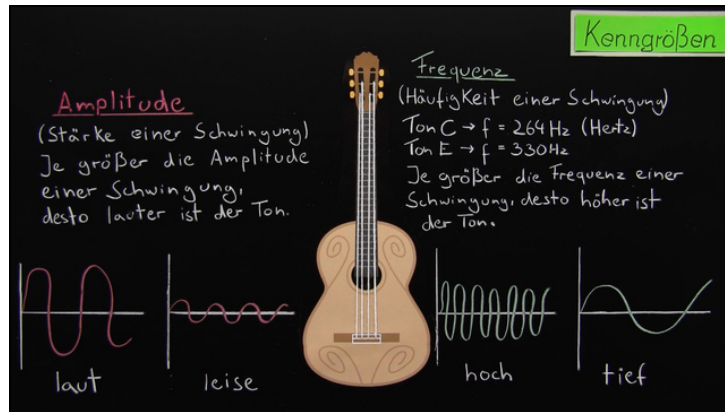 Kenngrößen
Amplitude
(Stärke einer Schwingung)
Je größer die Amplitude
einer Schwingung,
desto lauter ist der Ton.
Frequenz
(Häufigkeit einer Schwingung)
Ton C → f = 264 Hz (Hertz)
Ton E → f = 330Hz
Je größer die Frequenz einer
Schwingung, desto höher ist
der Ton.
laut
leise
hoch
tief